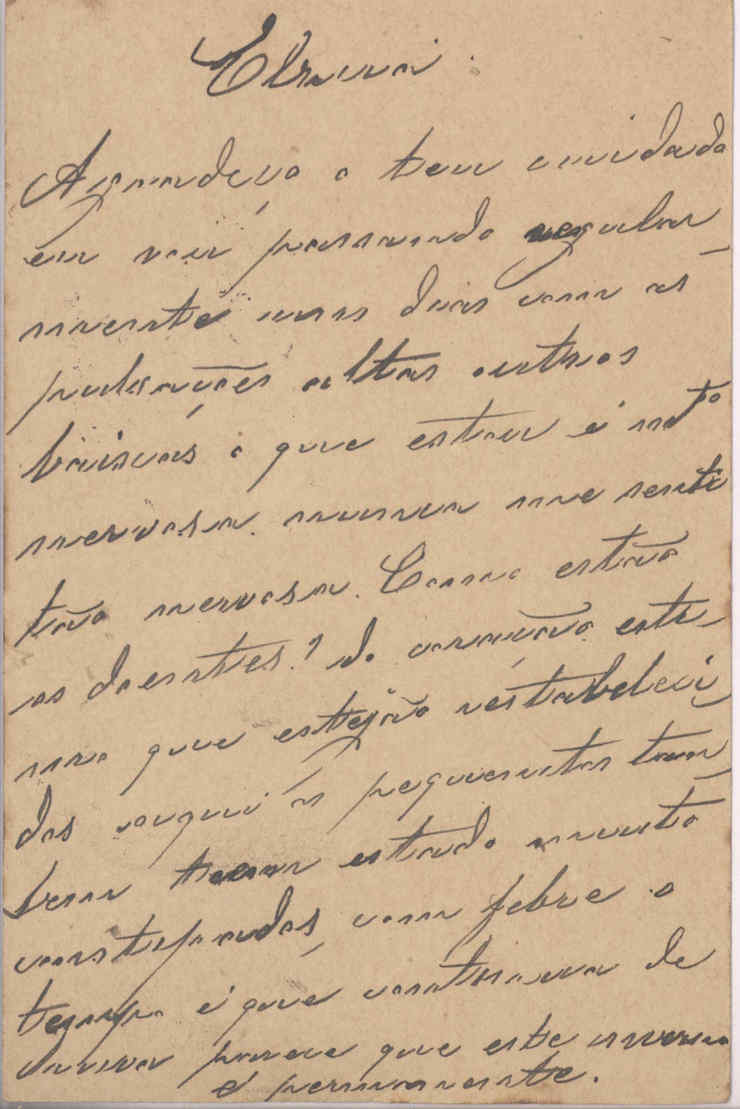 Elvira.
Agradeço o teu cuidado
eu vou passando regular-
mente uns dias com as
pulsações altas outros
baixas o que estou é mto
nervosa. nunca me senti
tão nervosa. Como estão
os doentes? do coração esti-
mo que estejão restabeleci
dos aqui os pequenitos tam-
bem teem estado muito
constipados, com febre o
tempo é que continua de
chuva parece que este inverno
é permanente.